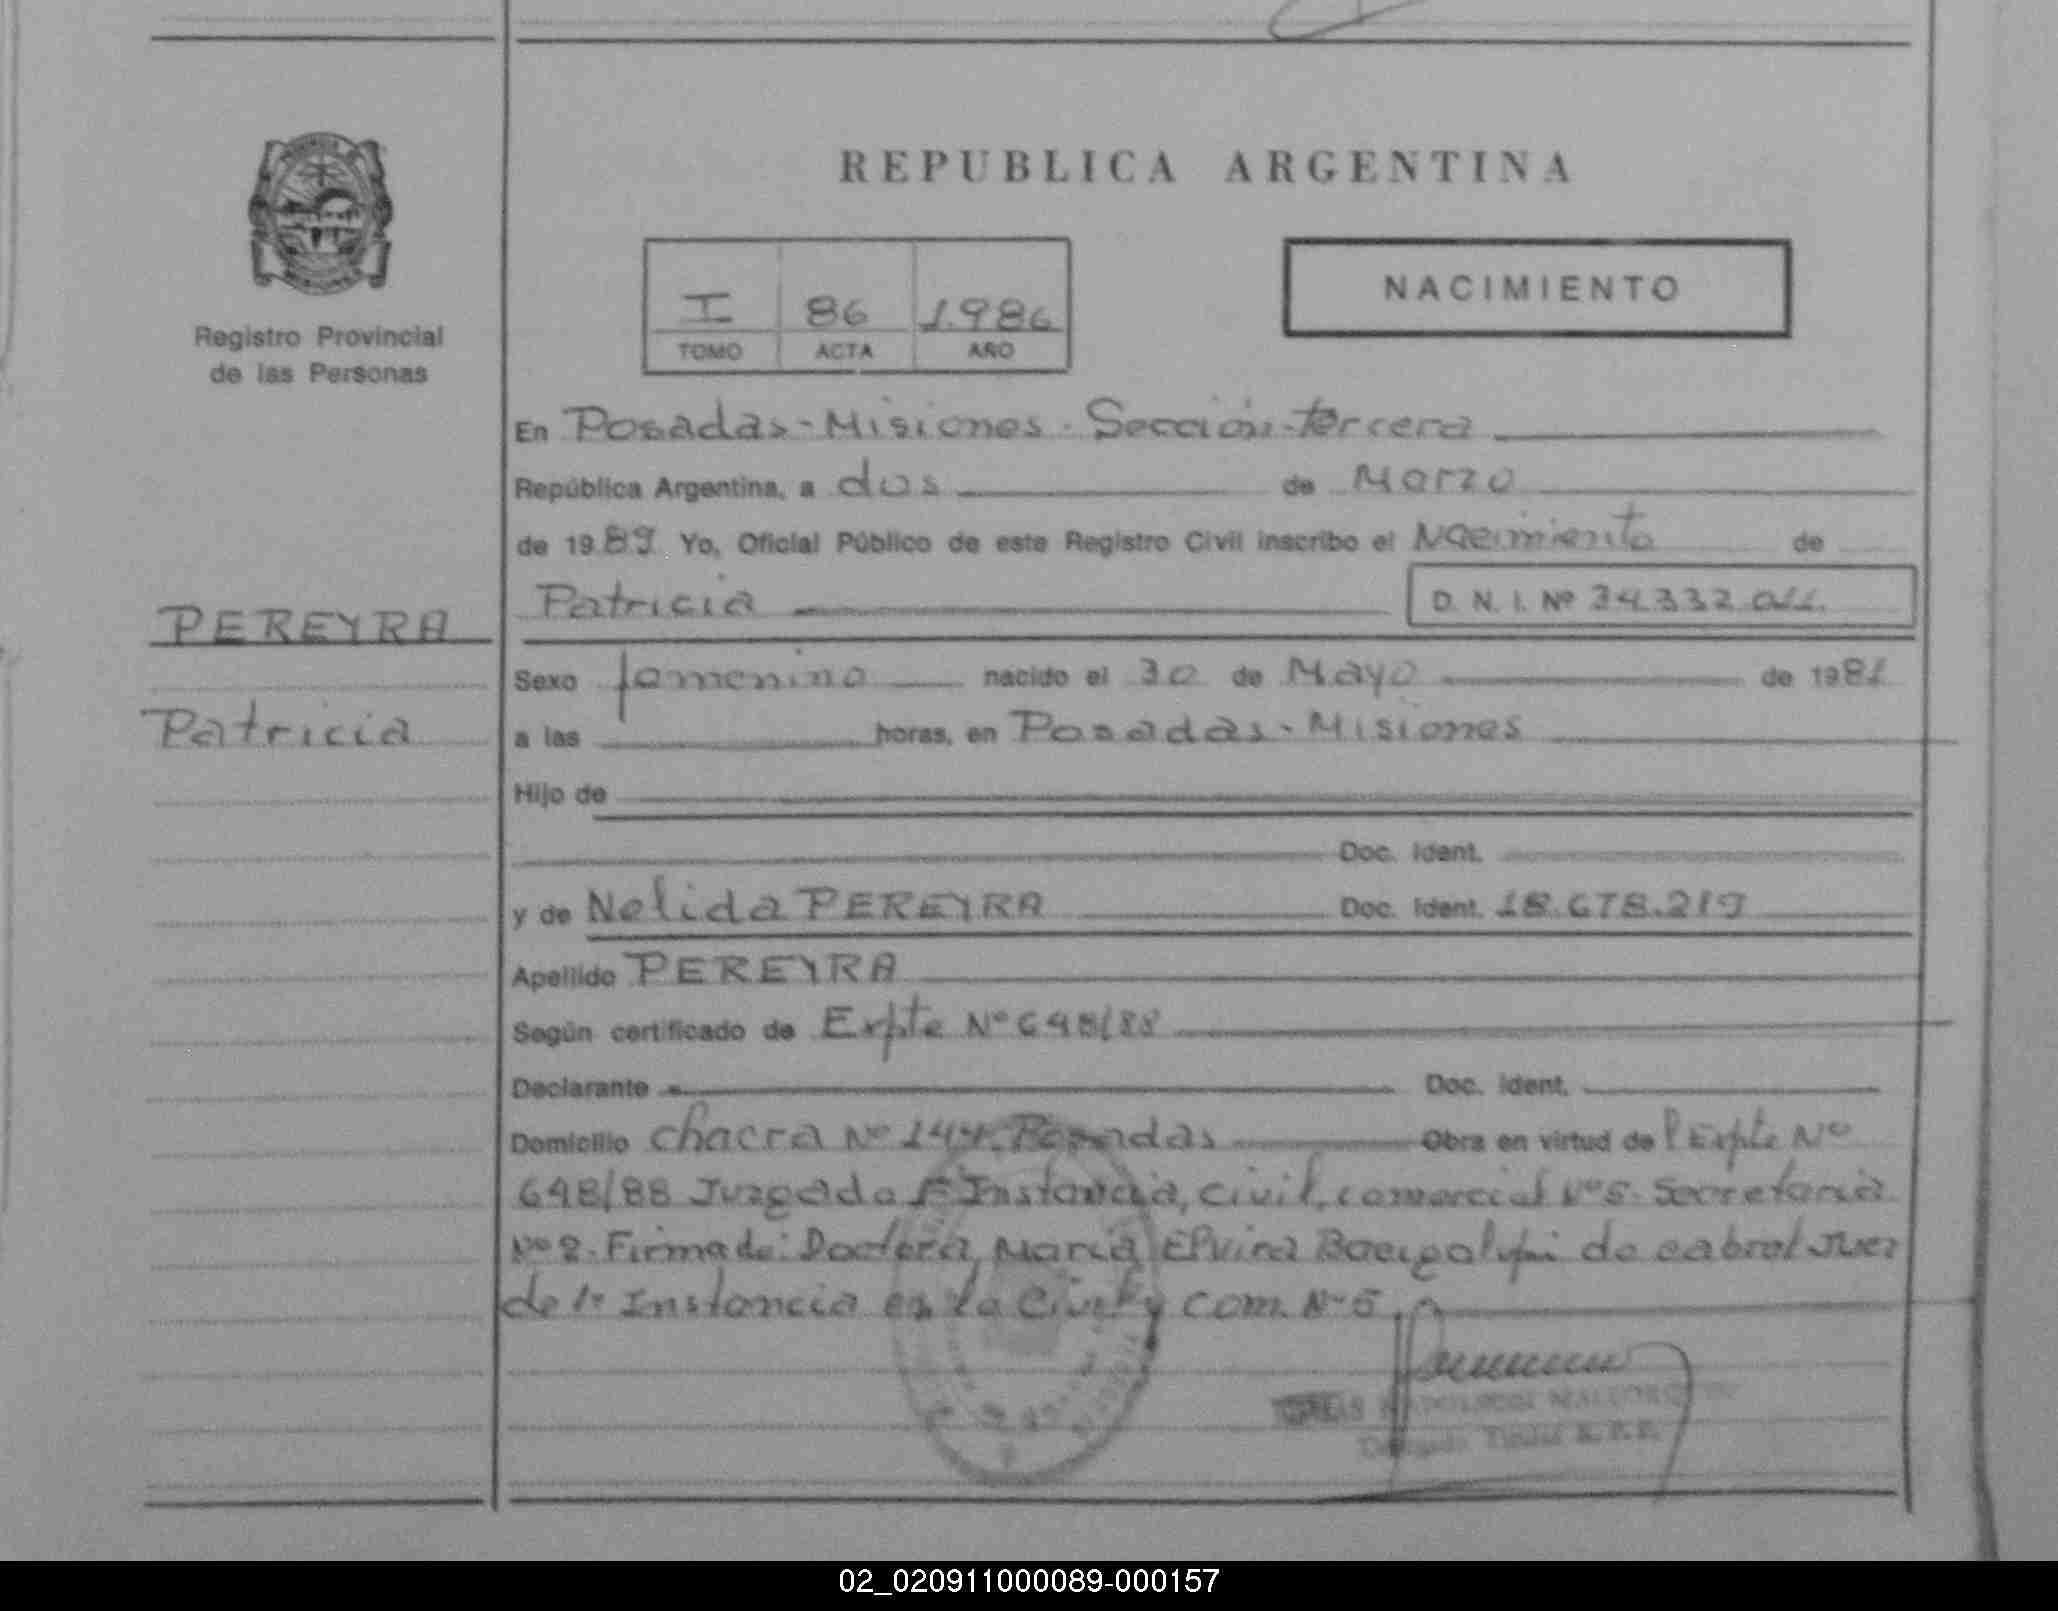 REPUBLICA ARGENTINA
NACIMIENTO
I 86 1.986
TOMO ACTA AÑO
Registro Provincial
de las Personas
En Posadas - Misiones - Sección tercera
República Argentina, a dos de Marzo
de 1989 Yo, Oficial Público de este Registro Civil inscribo el Nacimiento de
Patricia D. N. I. Nº 34.332.011.
PEREYRA
Sexo femenino nacido el 30 de Mayo de 1981
Patricia
a las horas, en Posadas - Misiones
Hijo de
Doc. Ident.
y de Nelida PEREYRA Doc. Ident. 18.678.219
Apellido PEREYRA
Según certificado de Expte Nº 648/88
Declarante Doc. Ident.
Domicilio Chacra Nº 144. Posadas Obra en virtud de l Expte Nº
648/88 Juzgado 1º Instancia, Civil, comercial Nº 5. Secretaria
Nº 2. Firmado: Doctora Maria Elvira de cabral Juez
de 1º Instancia en lo Civil y Com. Nº 5
02_020911000089-000157